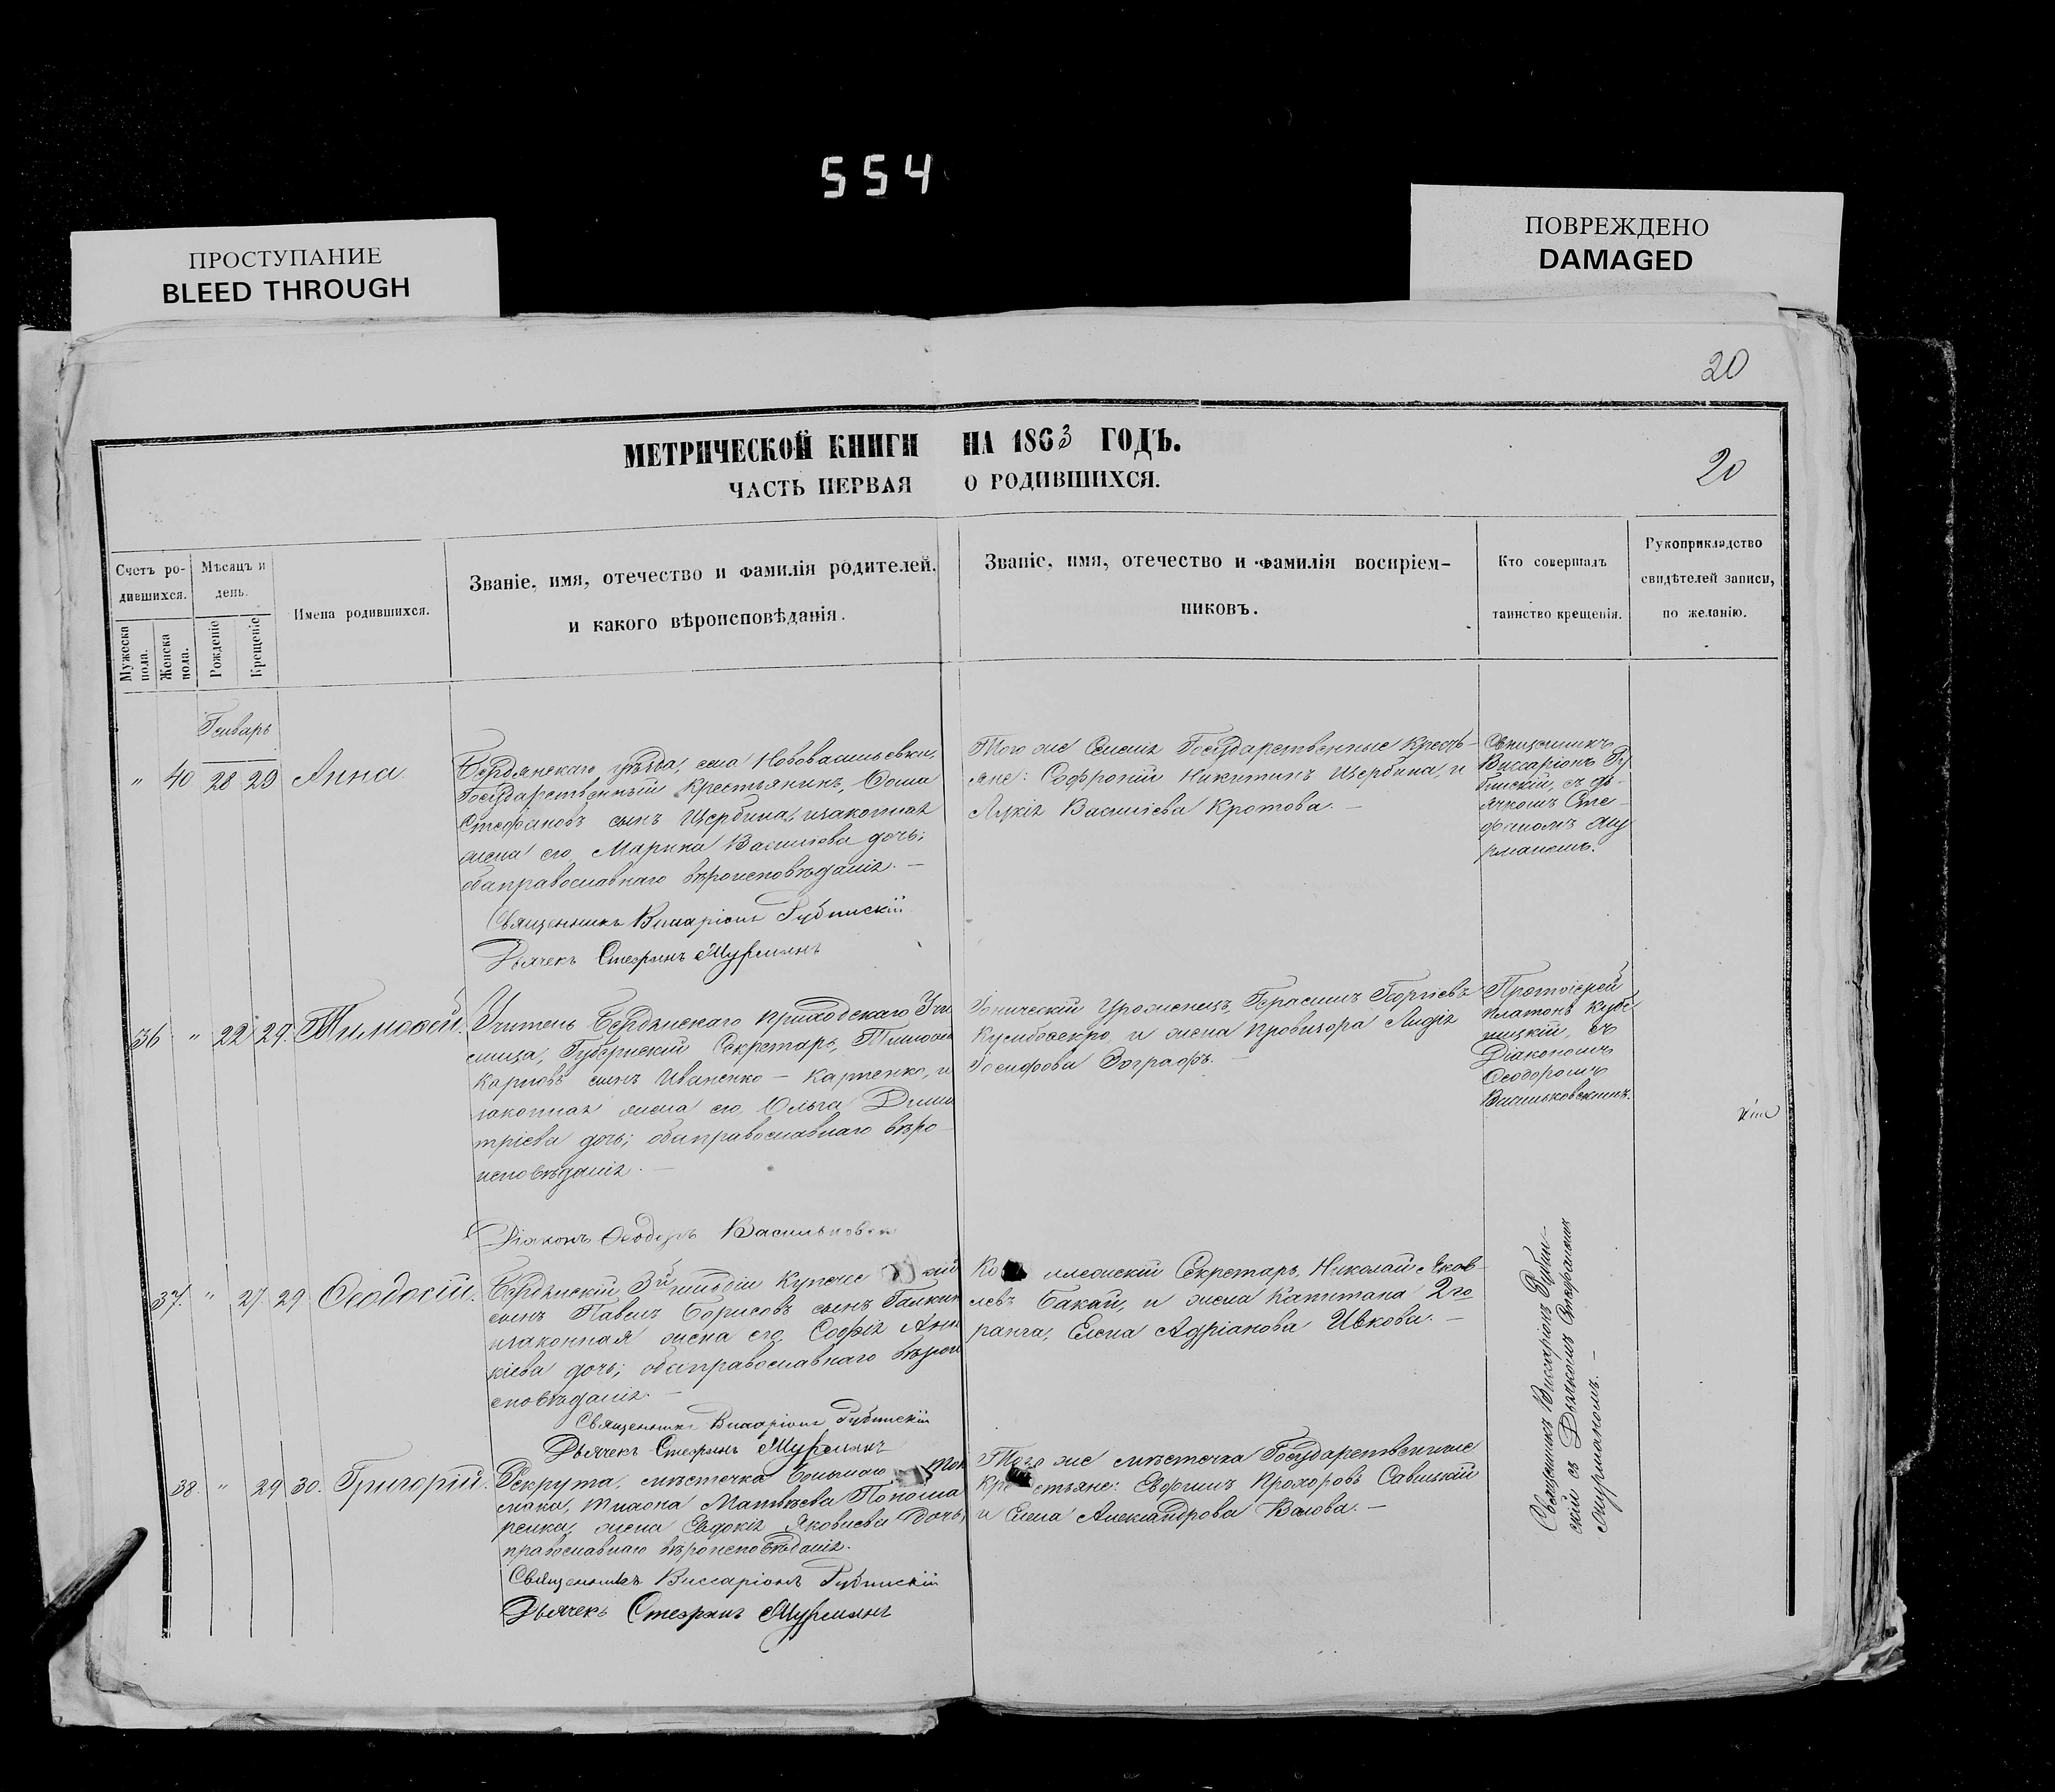 554
ПРОСТУПАНИЕ
BLEED THROUGH
ПОВРЕЖДЕНО
DAMAGED
20
МЕТРИЧЕСКОЙ КНИГИ НА 1863 ГОДЪ.
20
ЧАСТЬ ПЕРВАЯ О РОДИВШИХСЯ.
Счетъ ро-
дившихся.
Мужеска пола.
Женска пола.
Мѣсяцъ и
день.
Рожденіе
Крещеніе
Имена родившихся.
Званіе, имя, отечество и фамилія родителей,
и какого вѣроисповѣданія.
Званіе, имя, отечество и фамилія воспріем-
никовъ.
Кто совершалъ
таинство крещенія.
Рукоприкладство
свидѣтелей записи,
по желанію.
Генварь
" 40 28 29 Анна.
Бердянскаго уѣзда, села Нововасильевки,
Государственный Крестьянинъ, Ѳома
Стефановъ сынъ Щербина, и законная
жена его Марина Васильева дочь;
оба православнаго вѣроисповѣданія. —
Священникъ Виссаріонъ Рубинскій
Дьячекъ Стефанъ Мурманъ
Того же Селенія Государственные Кресть-
яне: Софроній Никитинъ Щербина, и
Лукія Васильева Кротова. —
Священникъ
Виссаріонъ Ру
бинскій, съ дь-
ячкомъ Сте-
фаномъ Му
рманомъ.
36 " 22 29. Тимоѳей.
Учитель Бердянскаго Приходскаго Учи
лища, Губернскій Секретарь, Тимоѳей
Карповъ сынъ Иваненко — Карпенко, и
законная жена его Ольга Дими
тріева дочь; оба православнаго вѣро-
исповѣданія. —
Діаконъ Ѳеодоръ Васильковск
Іоническій Уроженецъ, Герасимъ Георгіевъ
и жена Провизора Лидія
Іосифова
Протоіерей
Платонъ
съ
Діакономъ
Ѳеодоромъ
Васильковскимъ.
37. " 27 29 Ѳеодосій.
Бердянскій 3й гильдіи Купечес кій
сынъ Павелъ Борисовъ сынъ Галкин
и законная жена его Софія Ани
кіева дочь; оба православнаго вѣрои
сповѣданія. —
Священникъ Виссаріонъ Рубинскій
Дьячекъ Стефанъ Мурманъ
Ко лежскій Секретарь, Николай Яков-
левъ Бакай, и жена Капитана 2го
ранга, Елена Адріанова Ивкова. —
38. " 29 30. Григорій.
Рекрута, мѣстечка Большаго Ток
мака, Матвѣева Понома
ренка, жена Евдокія Яковлева дочь,
православнаго вѣроисповѣданія.
Священникъ Виссаріонъ Рубинскій
Дьячекъ Стефанъ Мурманъ
Того же мѣстечка Государственные
Кре стьяне: Евфимъ Прохоровъ Савицкій
и Елена Александрова Валова. —
Священникъ Виссаріонъ Рубин-
скій съ Дьячкомъ Стефаномъ
Мурманомъ. —